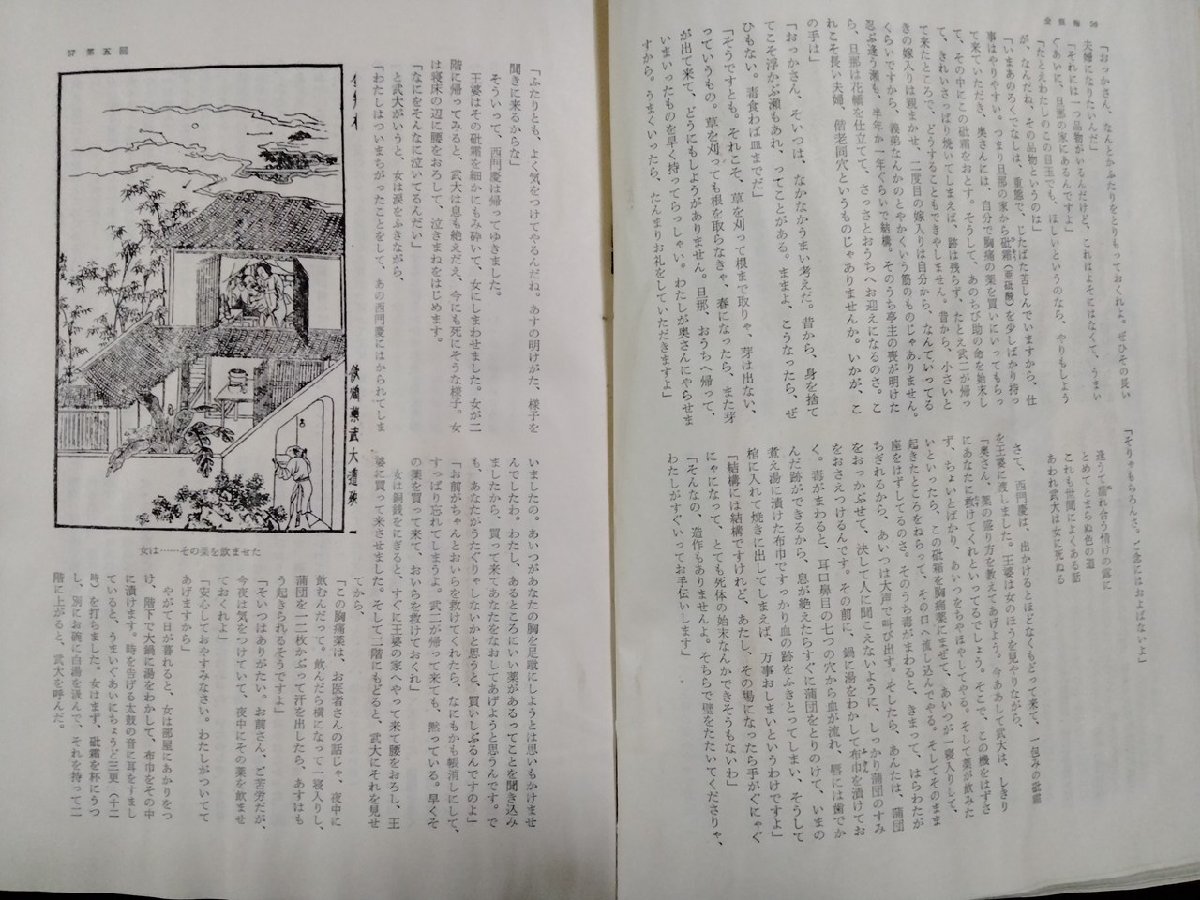 金瓶梅 56
「おっかさん、なんとかふたりをとりもっておくれよ。ぜひその長い
夫婦になりたいんだ」
「それには一つ品物がいるんだけど、これはよそにはなくて、うまい
ぐあいに、旦那の家にあるんですよ」
「たとえわたしのこの目玉でも、ほしいというのなら、やりもしよう
が、なんだね、その品物というのは」
「いまあのろくでなしは、重態で、じたばた苦しんでいますから、仕
事はやりやすい。つまり旦那の家から砒霜(亜砒酸)を少しばかり持っ
て来ていただき、奥さんには、自分で胸痛の薬を買いにいってもらっ
て、その中にこの砒霜をおとす。そうして、あのちび助の命を始末し
て、きれいさっぱり焼いてしまえば、跡は残らず、たとえ武二が帰っ
て来たところで、どうすることもできやしません。昔から、小さいと
きの嫁入りは親まかせ、二度目の嫁入りは自分から、なんていってる
くらいですから、義弟なんかのとやかくいう筋のものじゃありません。
忍ぶ逢う瀬も、半年か一年ぐらいで結構。そのうち亭主の喪が明けた
ら、旦那は花轎を仕立てて、さっさとおうちへお迎えになるのさ。こ
れこそ長い夫婦、偕老同穴というものじゃありませんか。いかが、こ
の手は」
「おっかさん、そいつは、なかなかうまい考えだ。昔から、身を捨て
てこそ浮かぶ瀬もあれ、ってことがある。ままよ、こうなったら、ぜ
ひもない。毒食わば皿までだ」
「そうですとも。それこそ、草を刈って根まで取りゃ、芽は出ない、
っていうもの。草を刈っても根を取らなきゃ、春になったら、また芽
が出て来て、どうにもしようがありません。旦那、おうちへ帰って、
いまいったものを早く持ってらっしゃい。わたしが奥さんにやらせま
すから。うまくいったら、たんまりお礼をしていただきますよ」
「そりゃもちろんさ。ご念にはおよばないよ」
逢うて濡れ合う情けの露に
とめてとまらぬ色の道
これも世間によくある話
あわれ武大は女に死ぬる
さて、西門慶は、出かけるとほどなくもどって来て、一包みの砒霜
を王婆に渡しました。王婆は女のほうを見かりながら、
「奥さん、薬の盛り方を教えてあげよう。今あああして武大は、しきり
にあなたに救けてくれといってるでしょう。そこで、この機をはずさ
ず、ちょいとばかり、あいつをちやほやしてやる。そして薬が飲みた
いといったら、この砒霜を胸痛薬にまぜて、あいつが一寝入りして、
起きたところをねらって、その口へ流し込んでやる。そしてそのまま
座をはずしてるのさ。そのうち毒がまわると、きまって、はらわたが
ちぎれるから、あいつは大声で叫び出す。そしたら、あんたは、蒲団
をおっかぶせて、決して人に聞こえないように、しっかり蒲団のすみ
をおさえつけるんです。その前に、鍋に湯をわかして布巾を漬けてお
く。毒がまわると、耳口鼻目の七つの穴から血が流れ、唇には歯でか
んだ跡ができるから、息が絶えたらすぐに蒲団をとりのけて、いまの
煮え湯に漬けた布巾ですっかり血の跡をふきとってしまい、そうして
棺に入れて焼きに出してしまえば、万事おしまいというわけですよ」
「結構には結構ですけれど、あたし、その場になったら手がぐにゃぐ
にゃになって、とても死体の始末なんかできそうもないわ」
「そんなの、造作もありませんよ。そちらで壁をたたいてくださりゃ、
わたしがすぐいってお手伝いします」
57 第五回
「ふたりとも、よく気をつけてやるんだね。あすの明けがた、様子を
聞きに来るからな」
そういって、西門慶は帰ってゆきました。
王婆はその砒霜を細かにもみ砕いて、女にしまわせました。女が二
階に帰ってみると、武大は息も絶えだえ、今にも死にそうな様子。女
は寝床の辺に腰をおろして、泣きまねをはじめます。
「なにをそんなに泣いてるんだい」
と武大がいうと、女は涙をふきながら、
「わたしはついまちがったことをして、あの西門慶にはかられてしま
いましたの。あいつがあなたの胸を足蹴にしようとは思いもかけませ
んでしたわ。わたし、あるところにいい薬があるってことを聞き込み
ましたから、買って来てあなたをなおしてあげようと思うんです。で
も、あなたがうたぐりゃしないかと思うと、買いしぶるんですのよ」
「お前がちゃんとおいらを救けてくれたら、なにもかも帳消しにして、
すっぱり忘れてしまうよ。武二が帰って来ても、黙っている。早くそ
の薬を買って来て、おいらを救けておくれ」
女は銅銭をにぎると、すぐに王婆の家へやって来て腰をおろし、王
婆に買って来させました。そして二階にもどると、武大にそれを見せ
てから、
「この胸痛薬は、お医者さんの話じゃ、夜中に
飲むんだって。飲んだら横になって一寝入りし、
蒲団を一二枚かぶって汗を出したら、あすはも
う起きられるそうですよ」
「そいつはありがたい。お前さん、ご苦労だが、
今夜は気をつけていて、夜中にその薬を飲ませ
ておくれよ」
「安心しておやすみなさい。わたしがついてて
あげますから」
やがて日が暮れると、女は部屋にあかりをつ
け、階下で大鍋に湯をわかし、布巾をその中
に漬けます。時を告げる太鼓の音に耳をすまし
ていると、うまいぐあいにちょうど三更(十二
時)を打ちました。女はまず、砒霜を杯にうつ
し、別にお碗に白湯を汲んで、それを持って二
階に上がると、武大を呼んだ。
飲鴆薬武大遭殃
女は……その薬を飲ませた